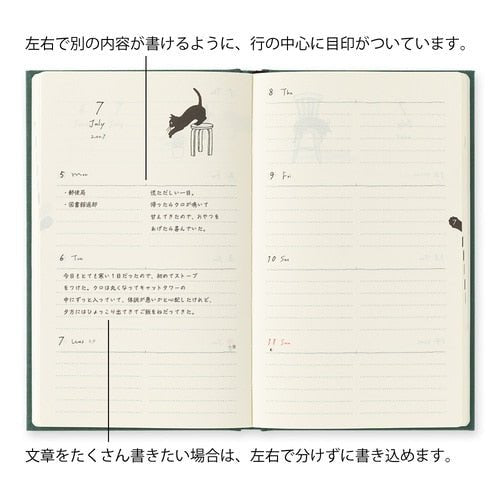 左右で別の内容が書けるように、行の中心に目印がついています。
7
July
5 Mon
・郵便局
・図書館返却
慌ただしい一日。
帰ったらクロが鳴いて
甘えてきたので、おやつを
あげたら喜んでいた。
6 Tue
今日もとても寒い1日だったので、初めてストーブ
をつけた。クロは丸くなってキャットタワーの
中にずっと入っていて、体調が悪いかと心配したけれど、
夕方にはひょっこり出てきてご飯をねだってきた。
7 Wed
8 Thu
9 Fri
7
10 Sat
11 Sun
文章をたくさん書きたい場合は、左右で分けずに書き込めます。